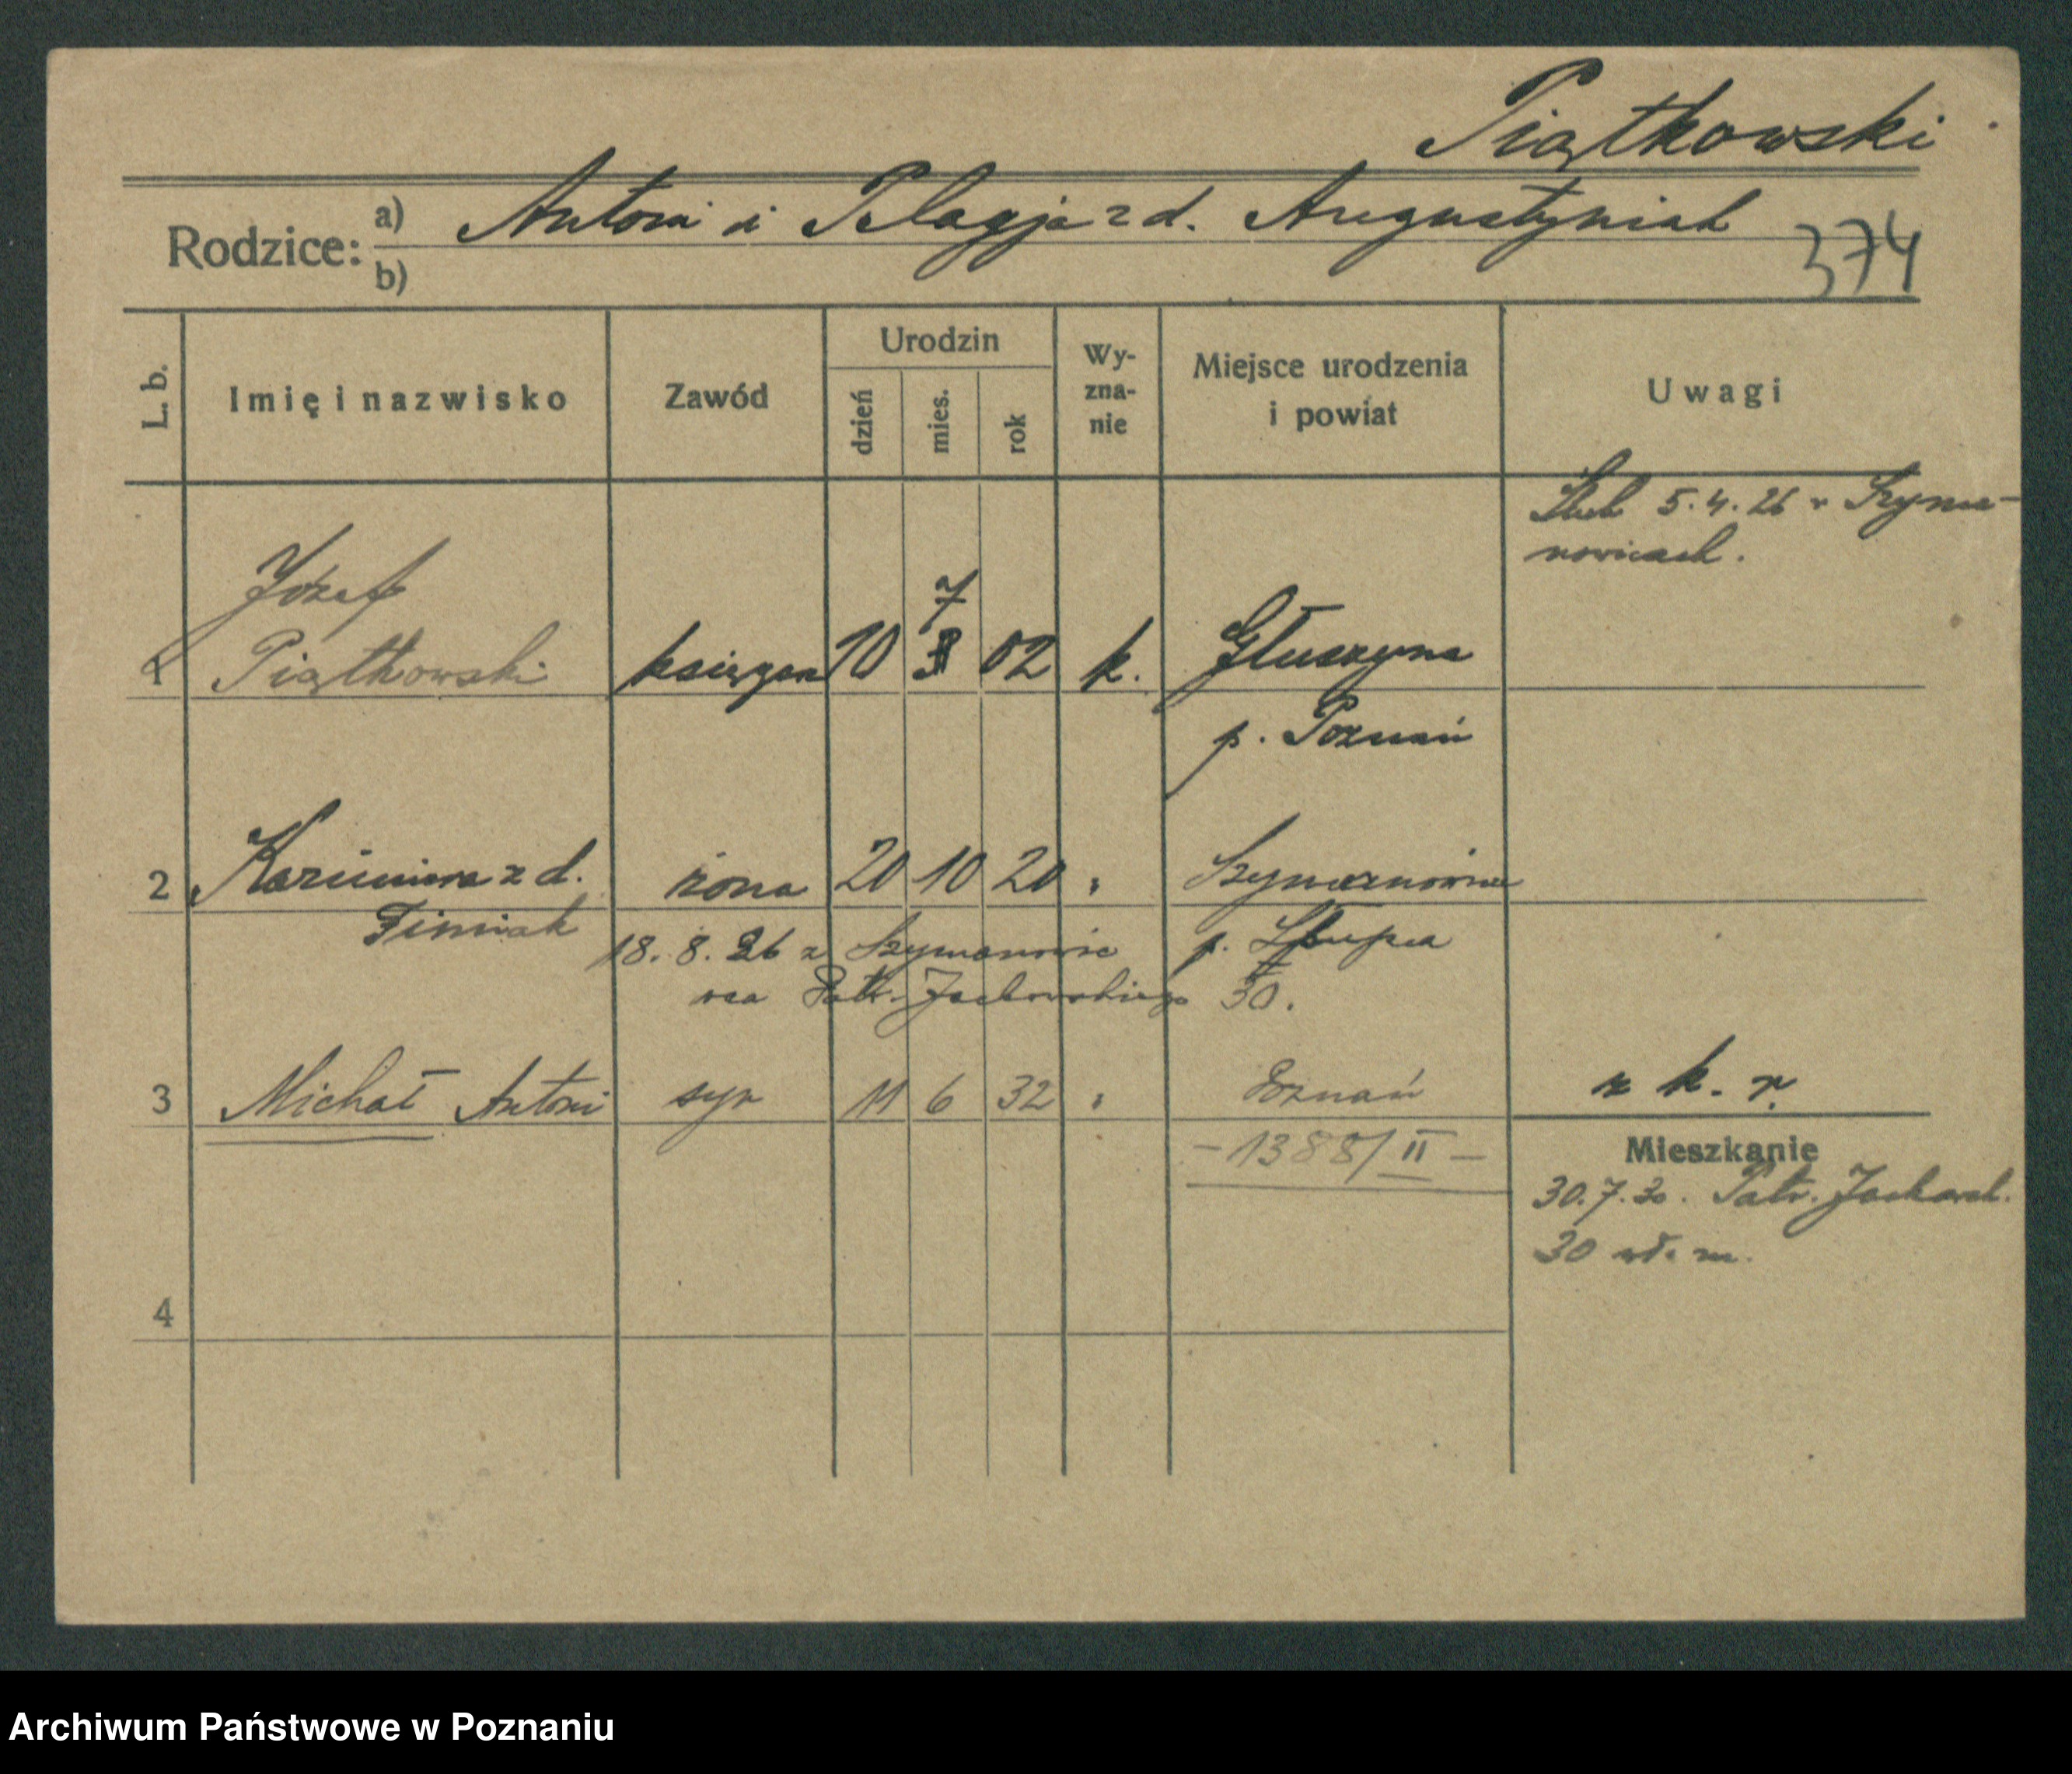 Piątkowski
Rodzice: a) Antoni i Pelagja z d. Augustyniak
b)
374
L. b.
Imię i nazwisko
Zawód
Urodzin
dzień
mies.
rok
Wy-
zna-
nie
Miejsce urodzenia
i powiat
Uwagi
Ślub 5.4.26 w Szyma-
nowicach.
Józef
7
1 Piątkowski księgarz 10 02 k. Głuszyna
p. Poznań
2 Kazimiera z d. żona 20 10 20 " Szymanowice
18. 8. 26 z Szymanowic p. Słupca
na Patr. Jackowskiego 30.
3 Michał Antoni syn 11 6 32 " Poznań
z k. r.
- 1388/II -
Mieszkanie
30.7.30. Patr. Jackowsk.
30 wł. m.
4
Archiwum Państwowe w Poznaniu